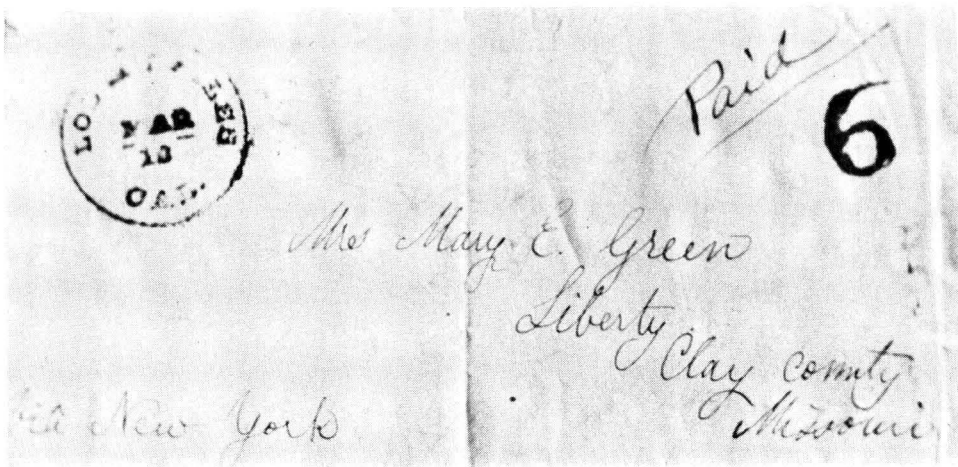 MAR
CAL.
Paid
6
Mrs Mary E. Green
Liberty
Clay County
Missouri
via New York